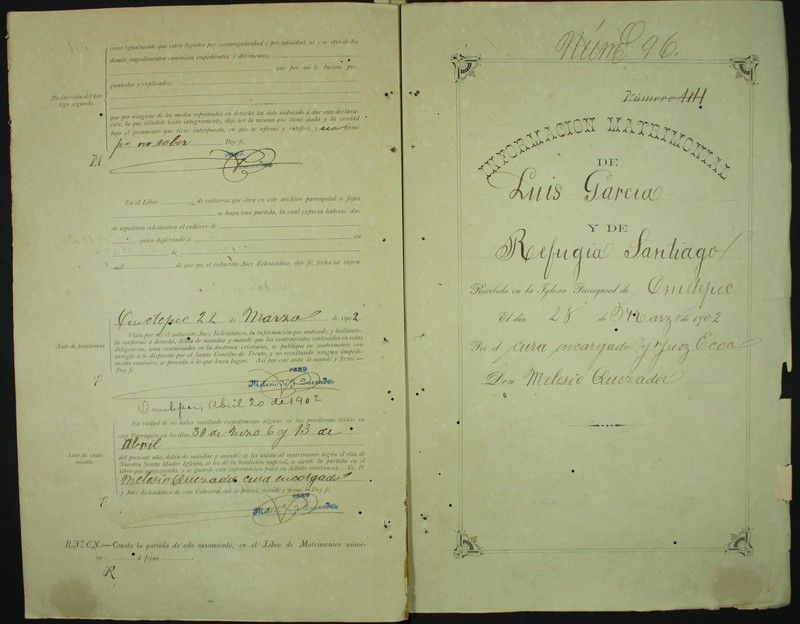 como igualmente que estén ligados por consanguinidad ó por afinidad ni con otro de los
demás impedimentos canónicos impedientes y dirimentes,
que por mí le fueron pre-
guntados y explicados:
Declaración del tes-
tigo segundo.
que por ninguno de los modos reprobados en derecho ha sido inducido á dar esta declara-
ción, la que siéndole leída íntegramente, dijo ser la misma que tiene dada y la verdad
bajo el juramento que tiene interpuesto, en que se afirmó y ratificó, y no firmó
pr no saber Doy fé.
En el Libro de entierros que obra en este archivo parroquial á fojas
se haya una partida, la cual expresa haberse da-
do sepultura eclesiástica al cadáver de
quien dejó viudo á en
de
de que yo, el subscrito Juez Eclesiástico, doy fé, fecha ut supra.
Ometepec 22 de Marzo de 1902
Auto de proclamas.
Vista por mí el subscrito Juez Eclesiástico, la información que antecede, y hallándo-
la conforme á derecho, debía de mandar y mandé que los contrayentes contenidos en estas
diligencias, sean examinados en la doctrina cristiana, se publique su matrimonio con
arreglo á lo dispuesto por el Santo Concilio de Trento, y no resultando ningún impedi-
mento canónico, se proceda á lo que haya lugar. Así por este auto lo mandé y firmé—
Doy fé.
PBRO
Melesio y Quezada
Ometepec, Abril 20 de 1902
En virtud de no haber resultado impedimento alguno en las proclamas leídas en
esta Parroquia en los días 30 de Marzo 6 y 13 de
Abril
Auto de casa-
miento.
del presente año, debía de mandar y mandé: se les asista al matrimonio según el rito de
Nuestra Santa Madre Iglesia, se les dé la bendición nupcial, se siente la partida en el
libro que corresponda, y se guarde esta información para su debida constancia. Yo, D.
Melesio Quezada cura encargado
y Juez Eclesiástico de esta Cabecera, así lo proveí, mandé y firmé.—Doy fé.
PBRO
Melesio y Quezada
RAZON.—Consta la partida de este casamiento, en el Libro de Matrimonios núme-
ro á fojas
R
Núm 96.
Número
INFORMACION MATRIMONIAL
DE
Luis Garcia
Y DE
Refugia Santiago
Recibida en la Iglesia Parroquial de Ometepec
El día 28 de Marzo de 1902
Por el cura encargado y Juez Ecco
Don Melesio Quezada